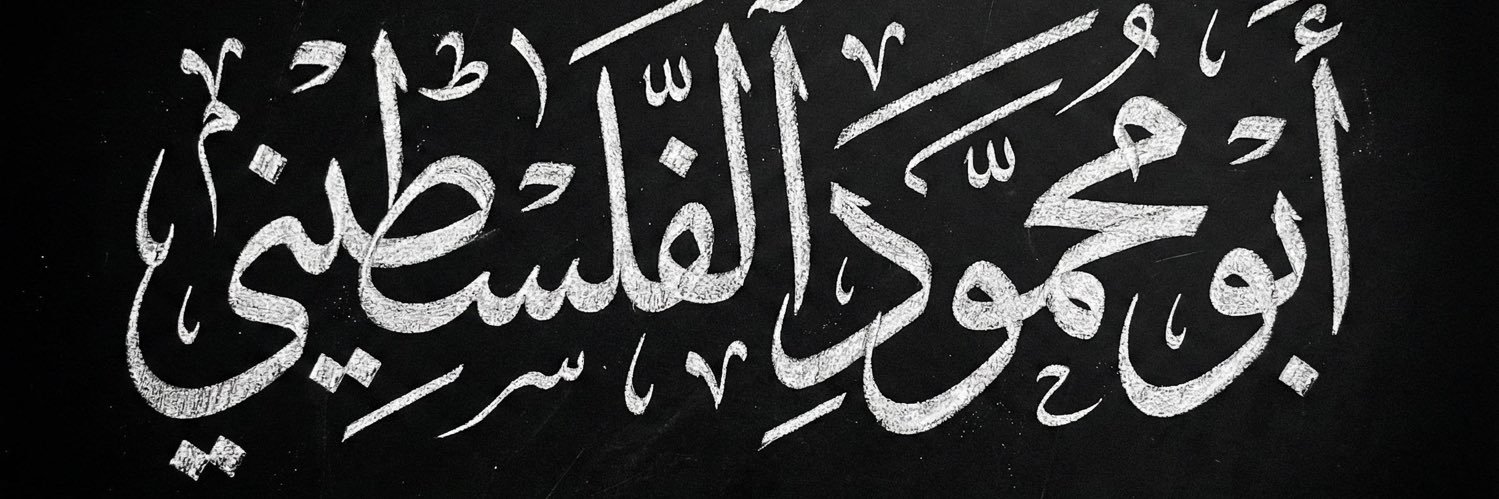 أبو محمود الفلسطيني